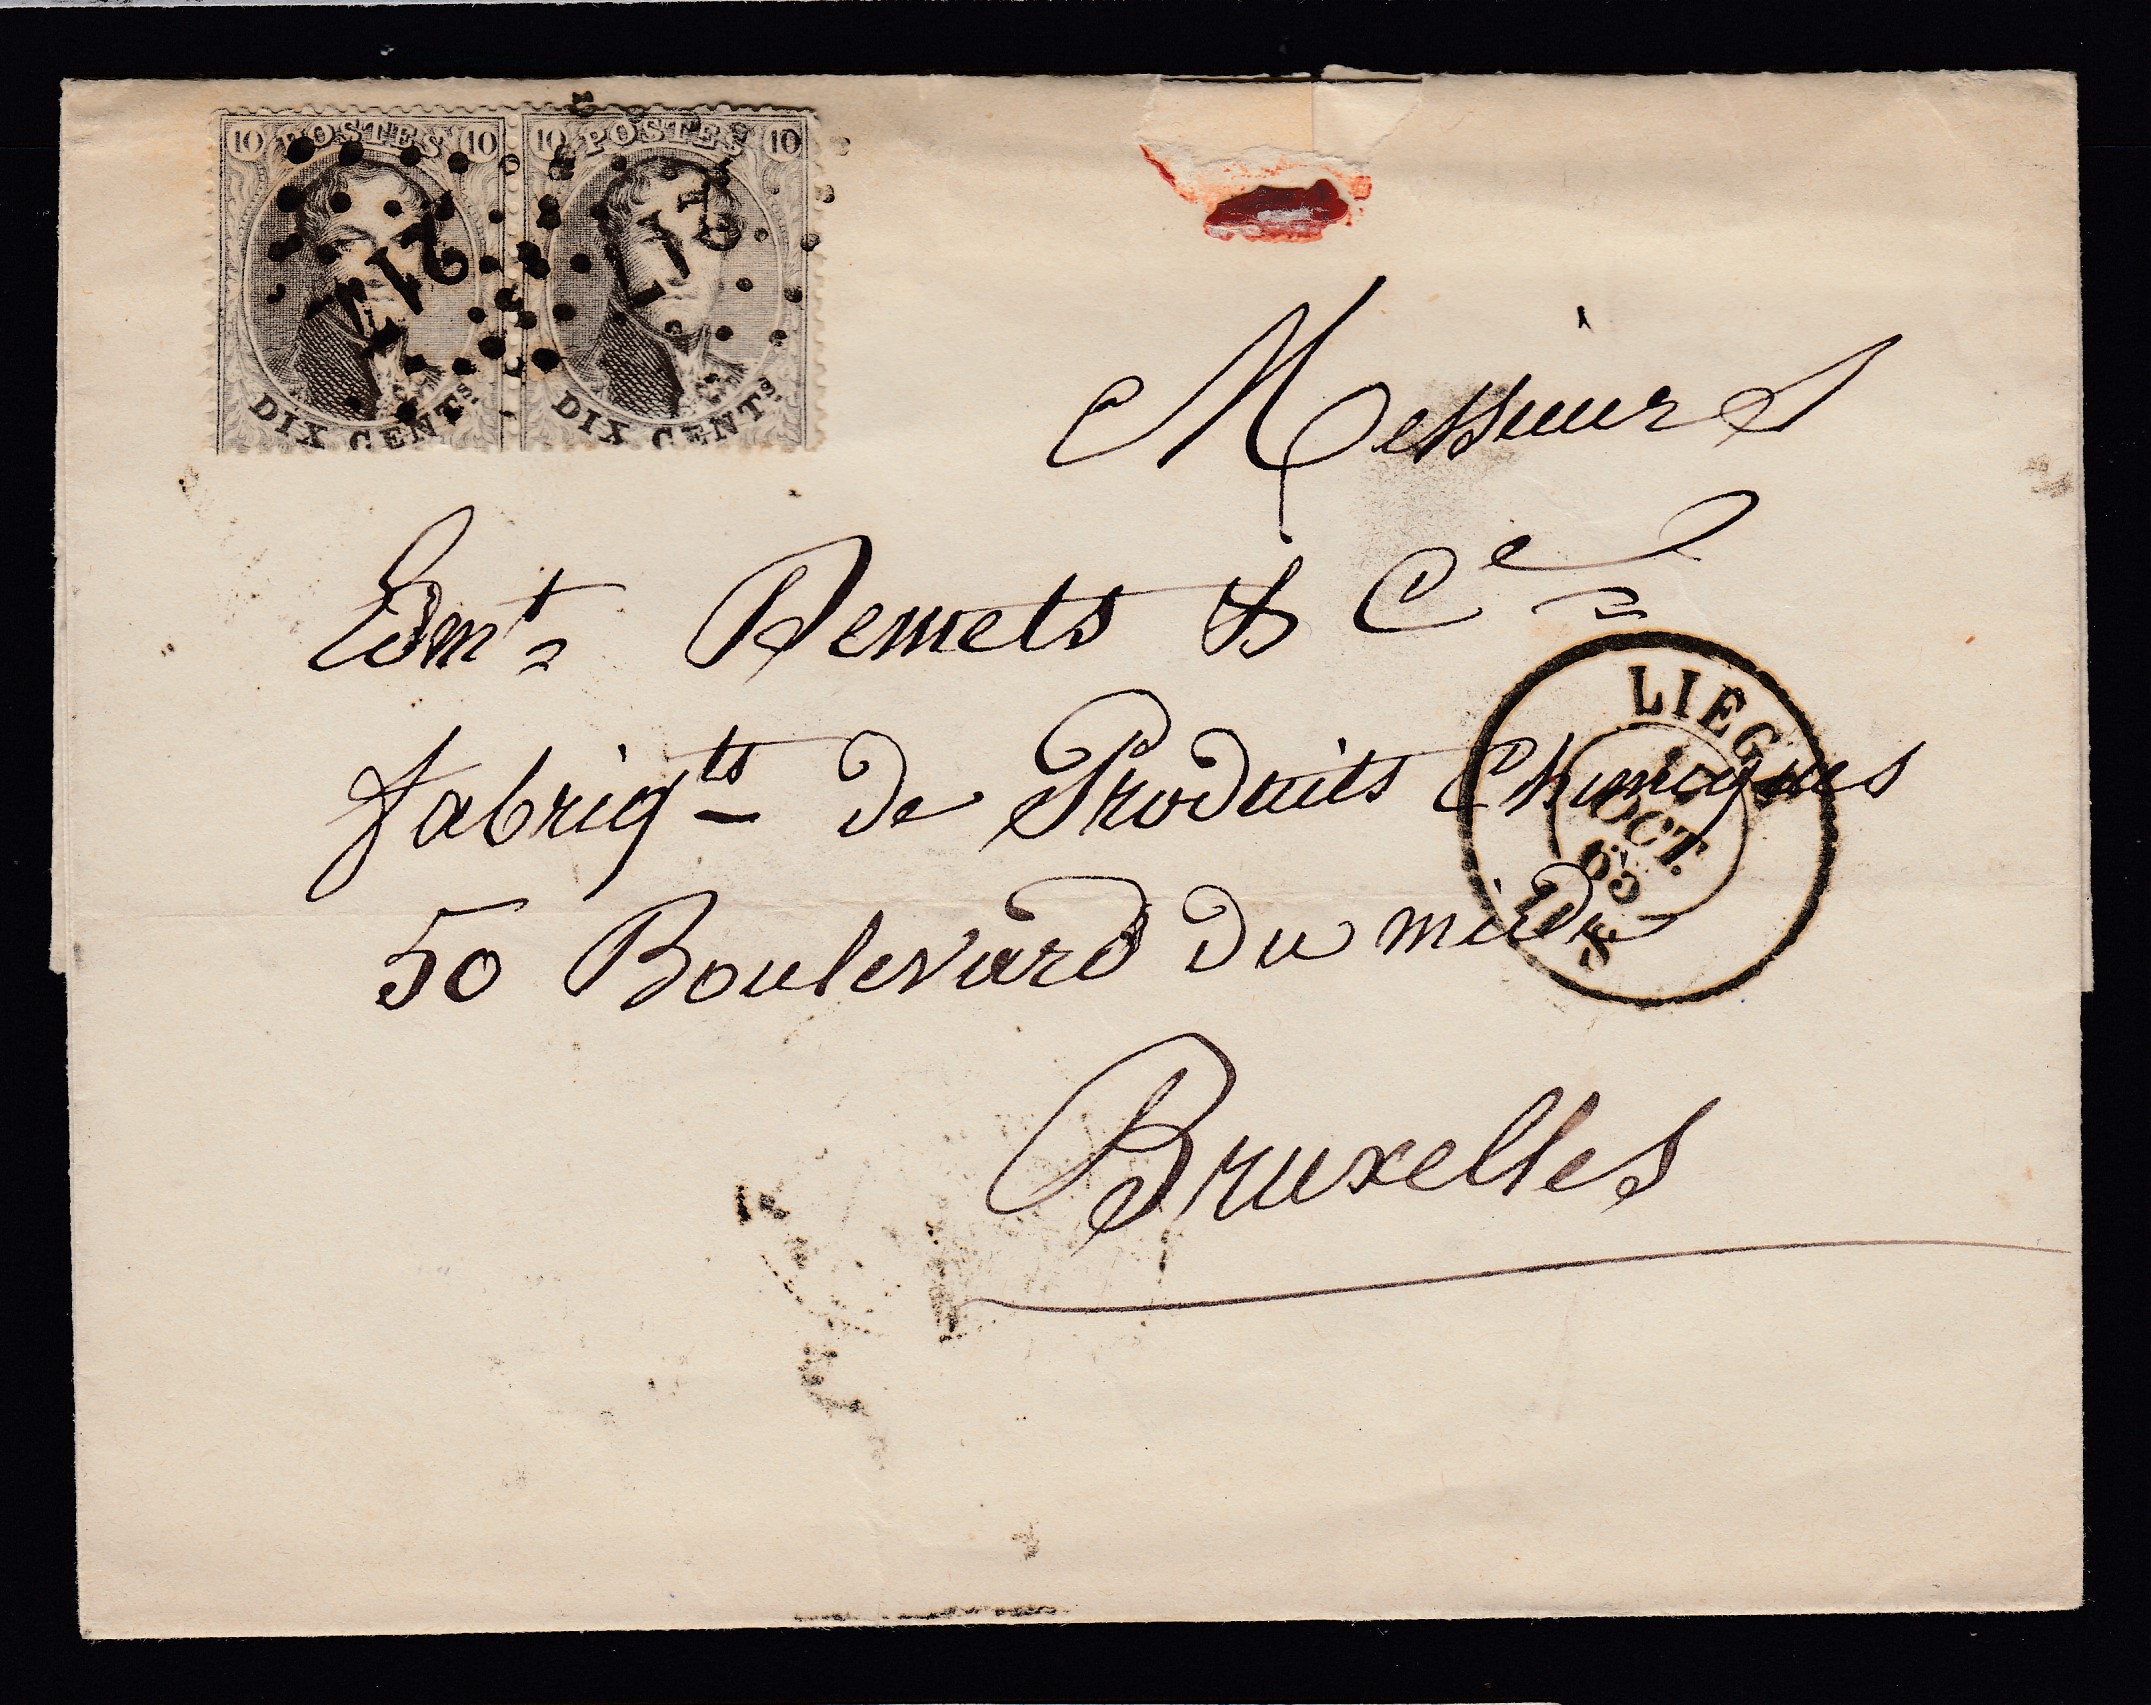 10 POSTES 10 10 POSTES 10
217 217
DIX CENTS. DIX CENTS.
Messieurs
Edmt Demets & Cie
fabriqts de Produits Chimiques
50 Boulevard du midi
Bruxelles
LIEGE
OCT.